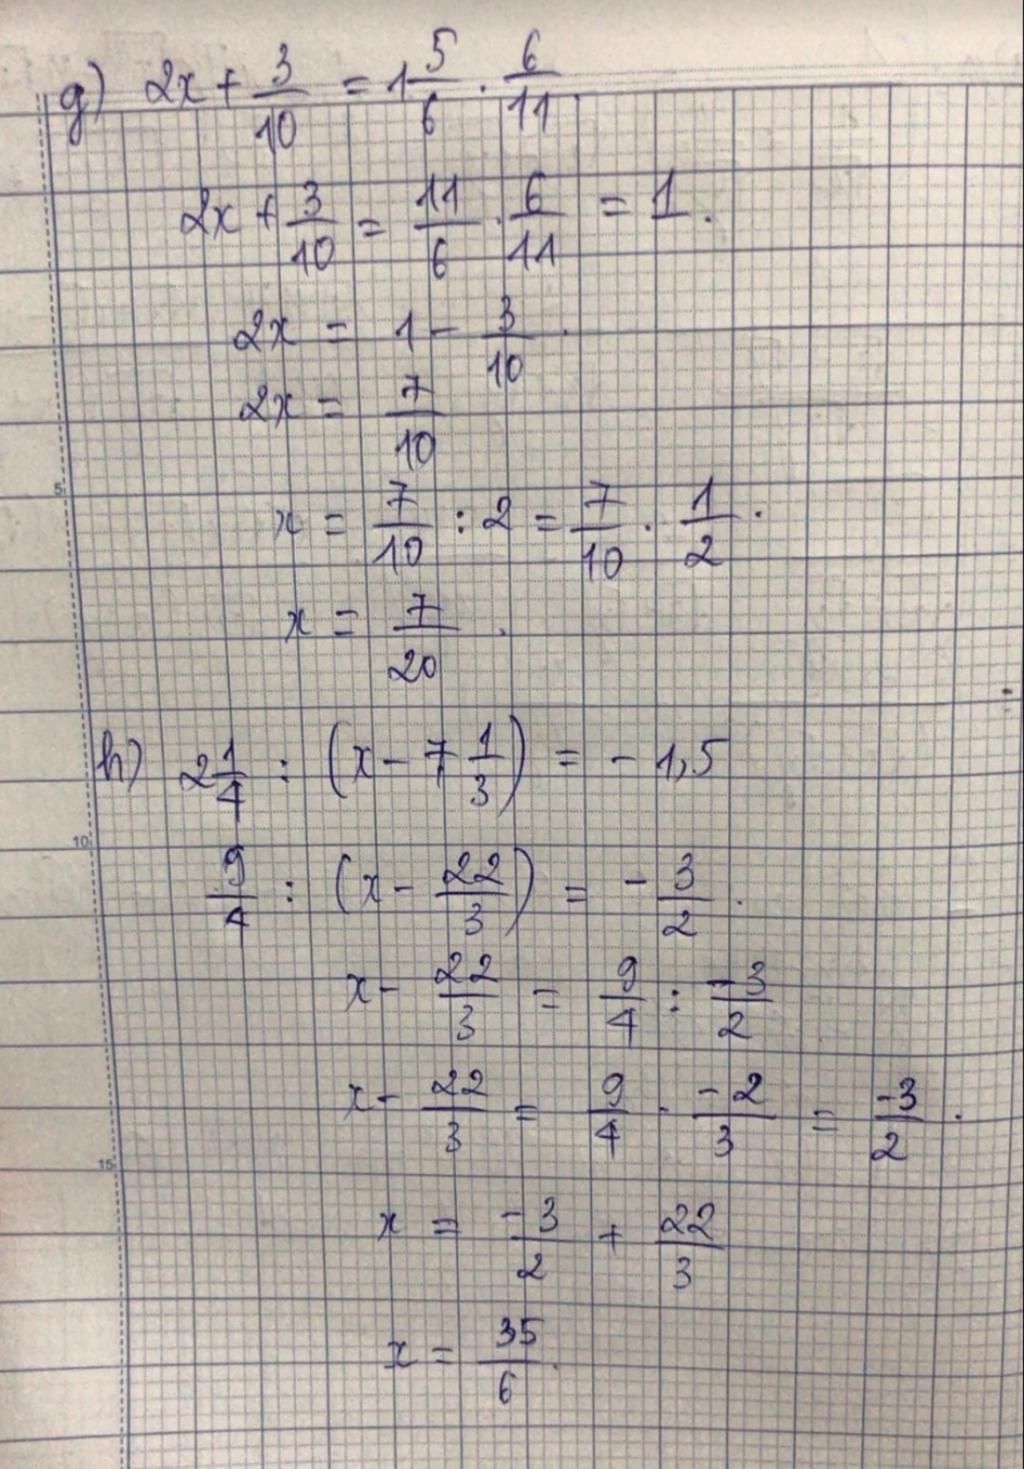 g) 2x + 3/10 = 1 5/6 . 6/11
2x + 3/10 = 11/6 . 6/11 = 1.
2x = 1 - 3/10.
2x = 7/10
5
x = 7/10 : 2 = 7/10 . 1/2.
x = 7/20.
h) 2 1/4 : (x - 7 1/3) = - 1,5
10
9/4 : (x - 22/3) = - 3/2.
x - 22/3 = 9/4 : -3/2
x - 22/3 = 9/4 . -2/3 = -3/2.
15
x = -3/2 + 22/3
x = 35/6.